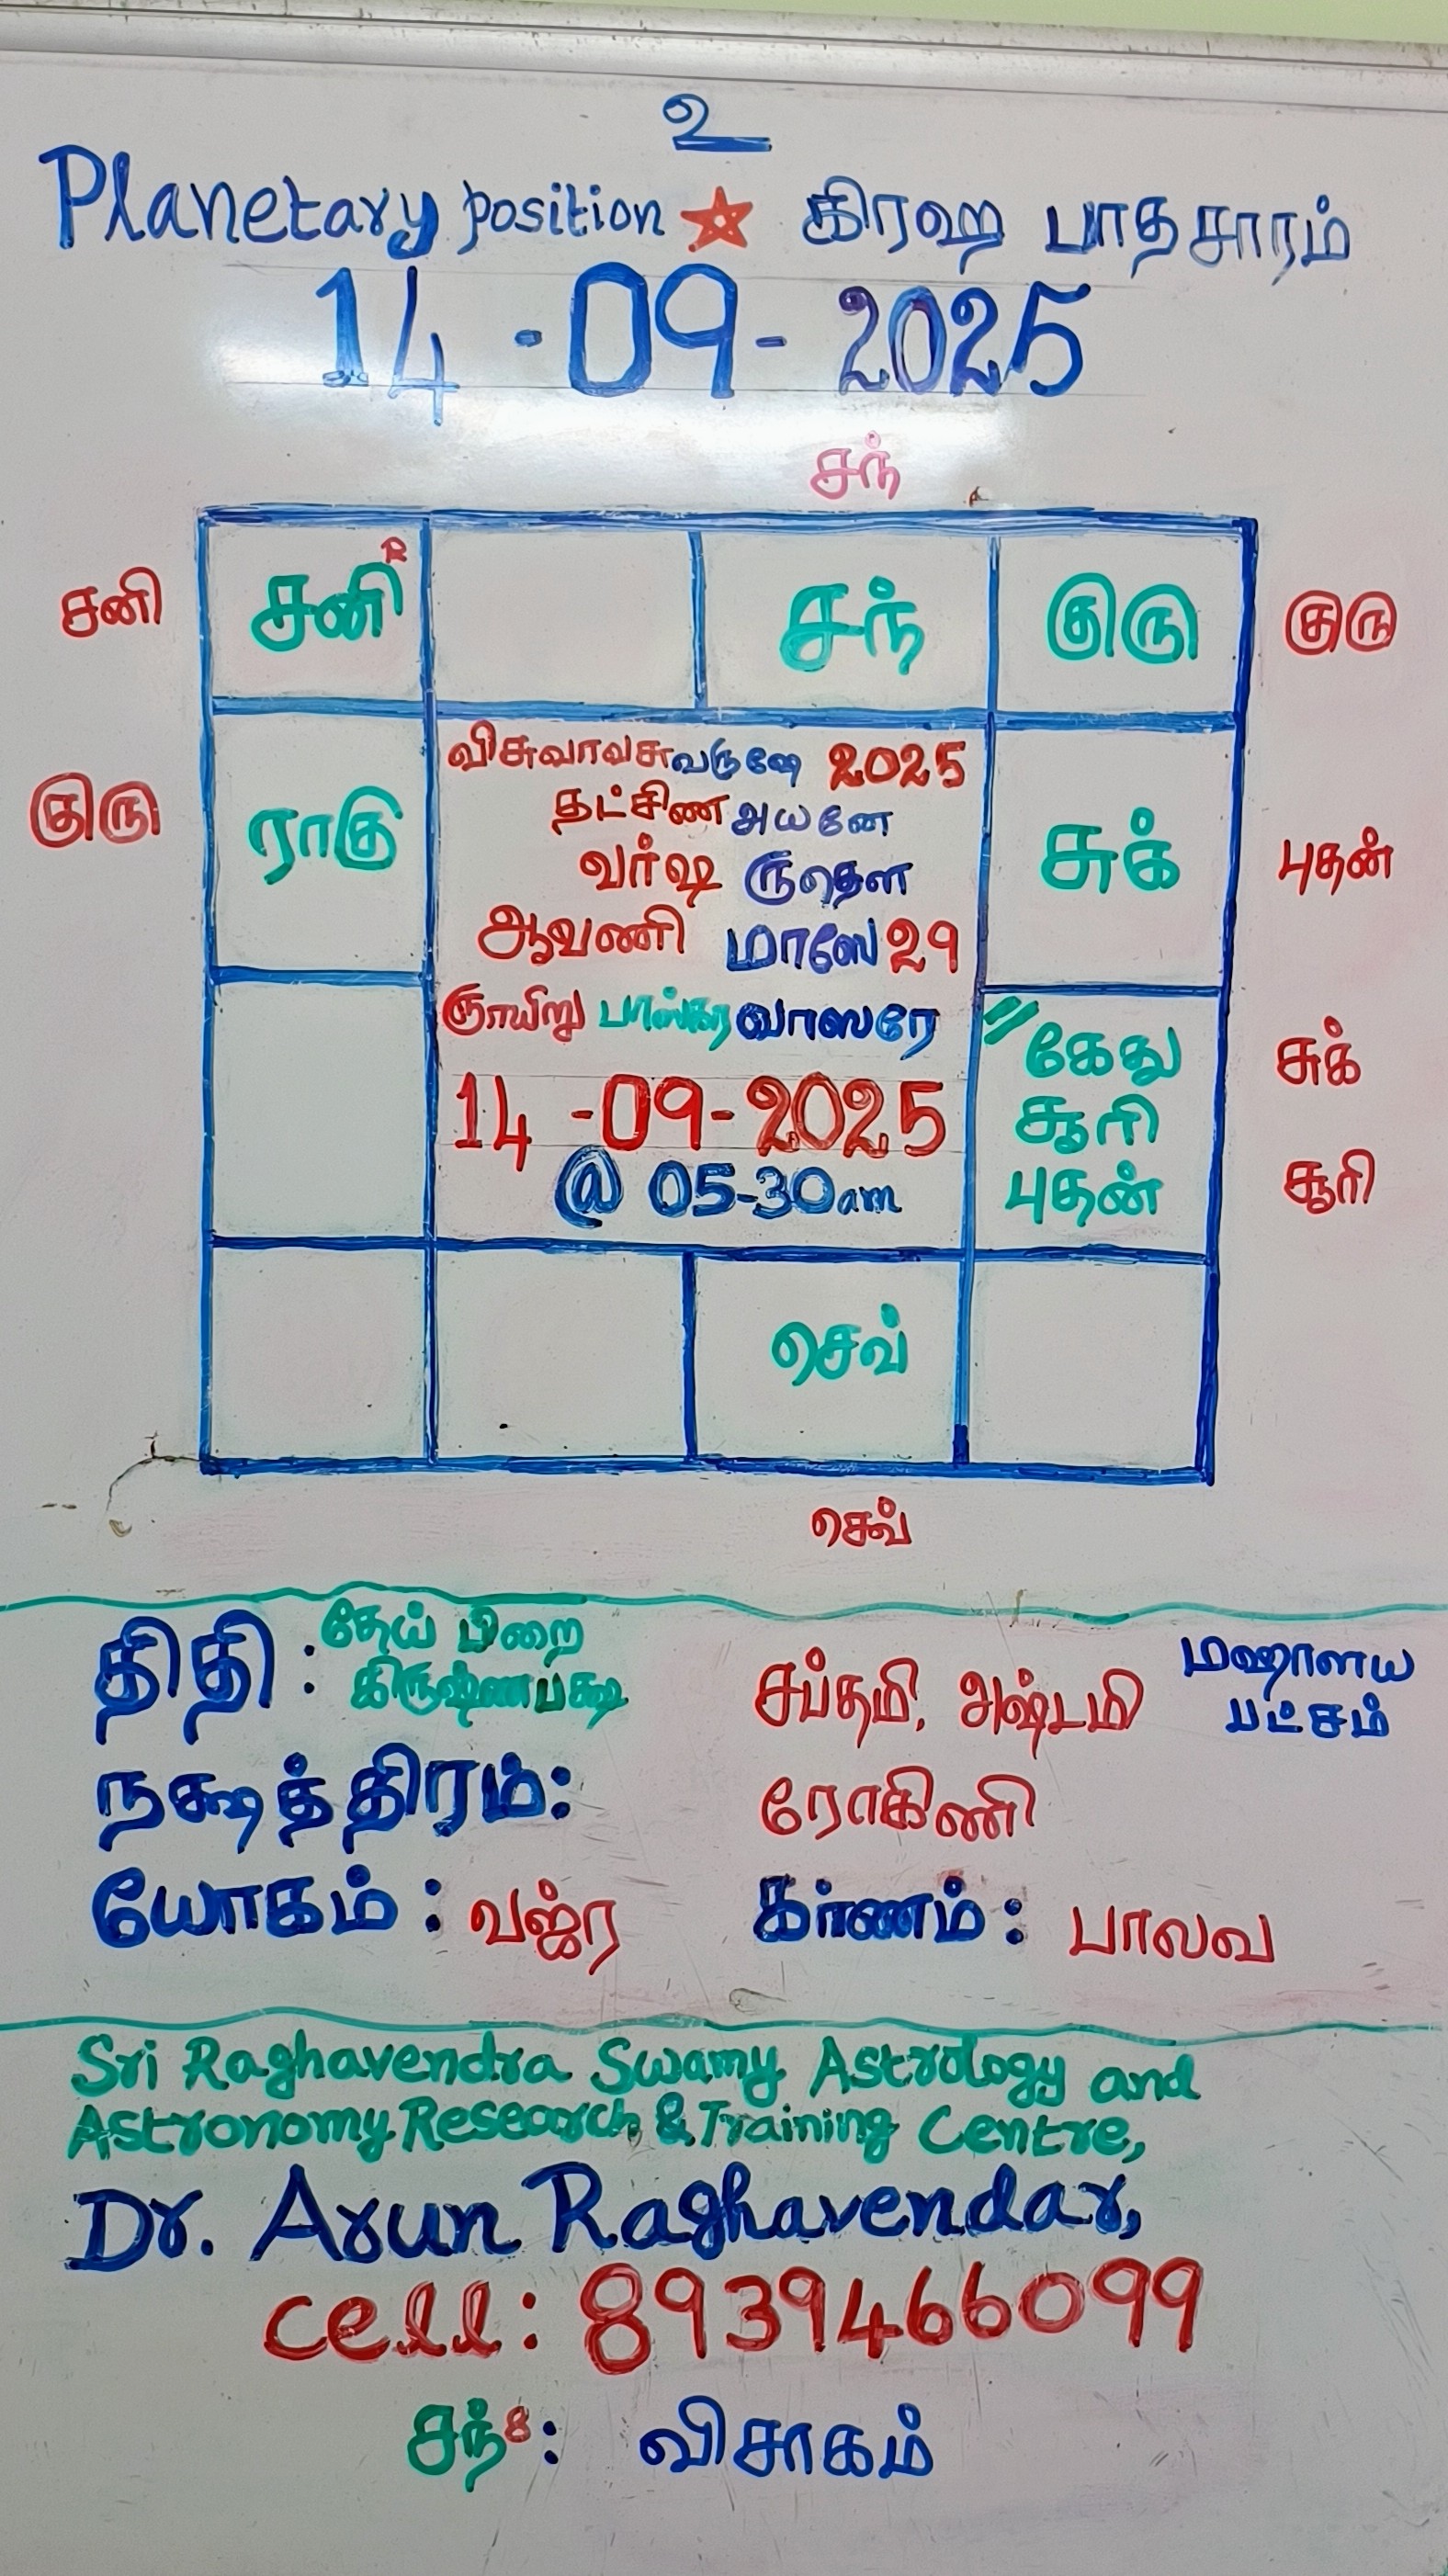 உ
Planetary position ★ கிரஹ பாதசாரம்
14-09-2025
சந்
சனி சனி R சந் குரு குரு
விசுவாவசு வருஷே 2025
தட்சிண அயனே
குரு ராகு சுக் புதன்
வர்ஷ ருதௌ
ஆவணி மாஸே 29
ஞாயிறு பாஸ்கர வாஸரே
கேது சுக்
14-09-2025 சூரி
@ 05-30am புதன் சூரி
செவ்
செவ்
திதி : தேய் பிறை
கிருஷ்ணபக்ஷ சப்தமி, அஷ்டமி மஹாளய
பட்சம்
நக்ஷத்திரம்: ரோகிணி
யோகம் : வஜ்ர கர்ணம் : பாலவ
Sri Raghavendra Swamy Astrology and
Astronomy Research & Training Centre,
Dr. Arun Raghavendar,
cell: 8939466099
சந்8 : விசாகம்